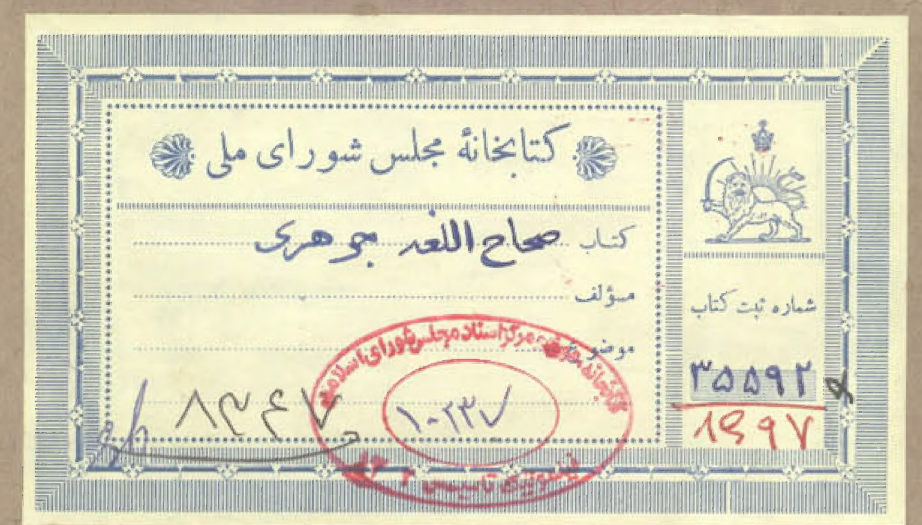 کتابخانهٔ مجلس شورای ملی
کتاب صحاح اللغه جوهری
مؤلف
موضوع
شماره ثبت کتاب
۳۵۵۹۲
کتابخانه موزه و مرکز اسناد مجلس شورای اسلامی
۱۰۲۳۷